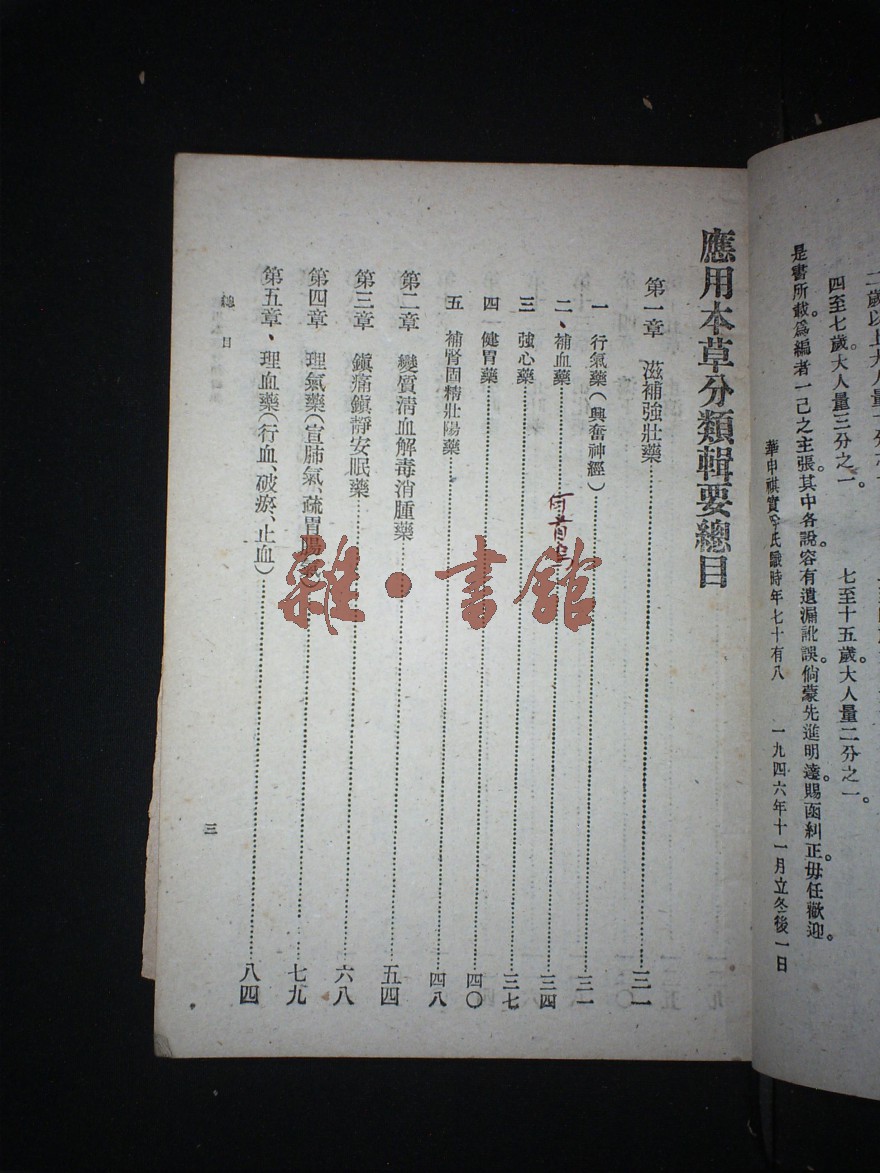 四至七歲大人量三分之一。
七至十五歲大人量二分之一。
是書所載爲編者一己之主張。其中各說容有遺漏訛誤。倘蒙先進明達。賜函糾正。毋任歡迎。
時年七十有八 一九四六年十一月立冬後一日
應用本草分類輯要總目
第一章 滋補強壯藥 三一
一 行氣藥（興奮神經） 三一
二、補血藥 三四
三 強心藥 三七
四 健胃藥 四〇
五 補腎固精壯陽藥 四八
第二章 變質清血解毒消腫藥 五四
第三章 鎭痛鎭靜安眠藥 六八
第四章 理氣藥（宣肺氣、疏胃腸氣） 七九
第五章、理血藥（行血、破瘀、止血） 八四
總目
三
雜·書館